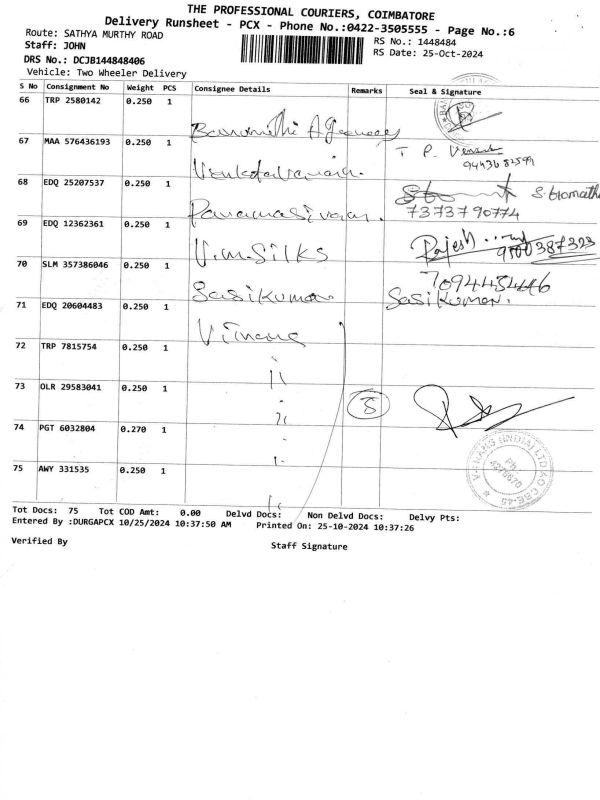 THE PROFESSIONAL COURIERS, COIMBATORE
Delivery Runsheet - PCX - Phone No.:0422-3505555 - Page No.:6
Route: SATHYA MURTHY ROAD
Staff: JOHN
RS No.: 1448484
DRS No.: DCJB144848406
RS Date: 25-Oct-2024
Vehicle: Two Wheeler Delivery
S No Consignment No Weight PCS Consignee Details Remarks Seal & Signature
66 TRP 2580142 0.250 1
67 MAA 576436193 0.250 1 T. P.
9443682599
68 EDQ 25207537 0.250 1
7373790774
69 EDQ 12362361 0.250 1 V.M.SILKS Rajesh
9500387323
70 SLM 357386046 0.250 1 Sasikumar 7094454446
Sasikumar.
71 EDQ 20604483 0.250 1
72 TRP 7815754 0.250 1
73 OLR 29583041 0.250 1
74 PGT 6032804 0.270 1
75 AWY 331535 0.250 1
Tot Docs: 75 Tot COD Amt: 0.00 Delvd Docs: Non Delvd Docs: Delvy Pts:
Entered By :DURGAPCX 10/25/2024 10:37:50 AM Printed On: 25-10-2024 10:37:26
Verified By Staff Signature